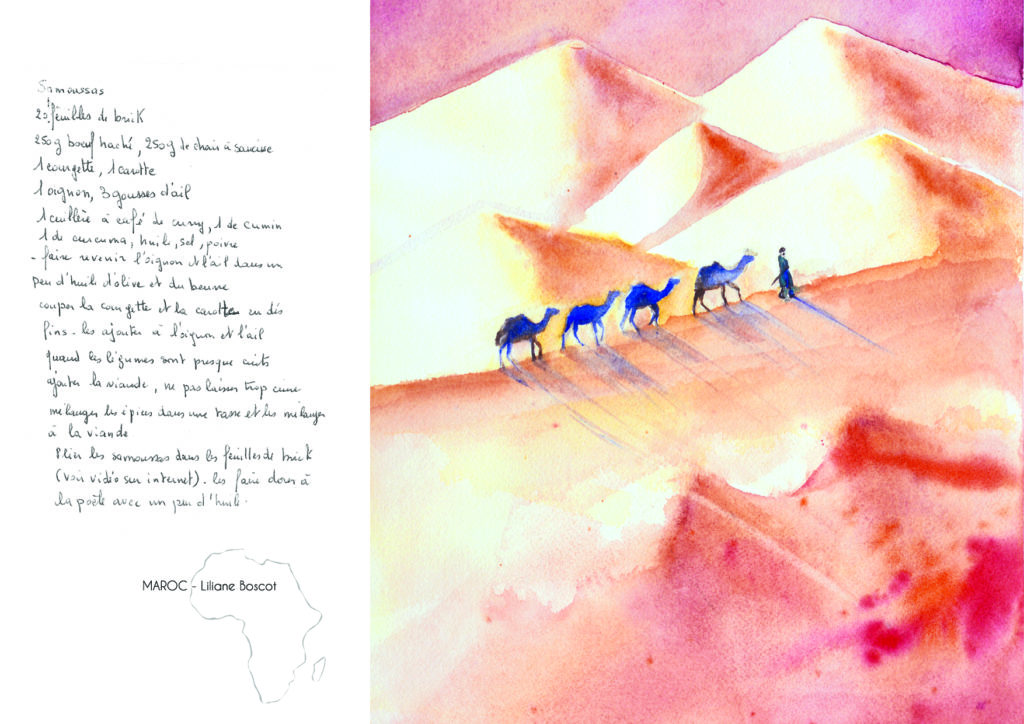 Samoussas
20 feuilles de brick
250g bœuf haché, 250g de chair à saucisse
1 courgette, 1 carotte
1 oignon, 3 gousses d'ail
1 cuillère à café de curry, 1 de cumin
1 de curcuma, huile, sel, poivre
- faire revenir l'oignon et l'ail dans un
peu d'huile d'olive et du beurre
couper la courgette et la carotte en dés
fins - les ajouter à l'oignon et l'ail
quand les légumes sont presque cuits
ajouter la viande, ne pas laisser trop cuire
mélanger les épices dans une tasse et les mélanger
à la viande
Plier les samoussas dans les feuilles de brick
(voir vidéo sur internet). les faire dorer à
la poêle avec un peu d'huile.
MAROC - Liliane Boscot